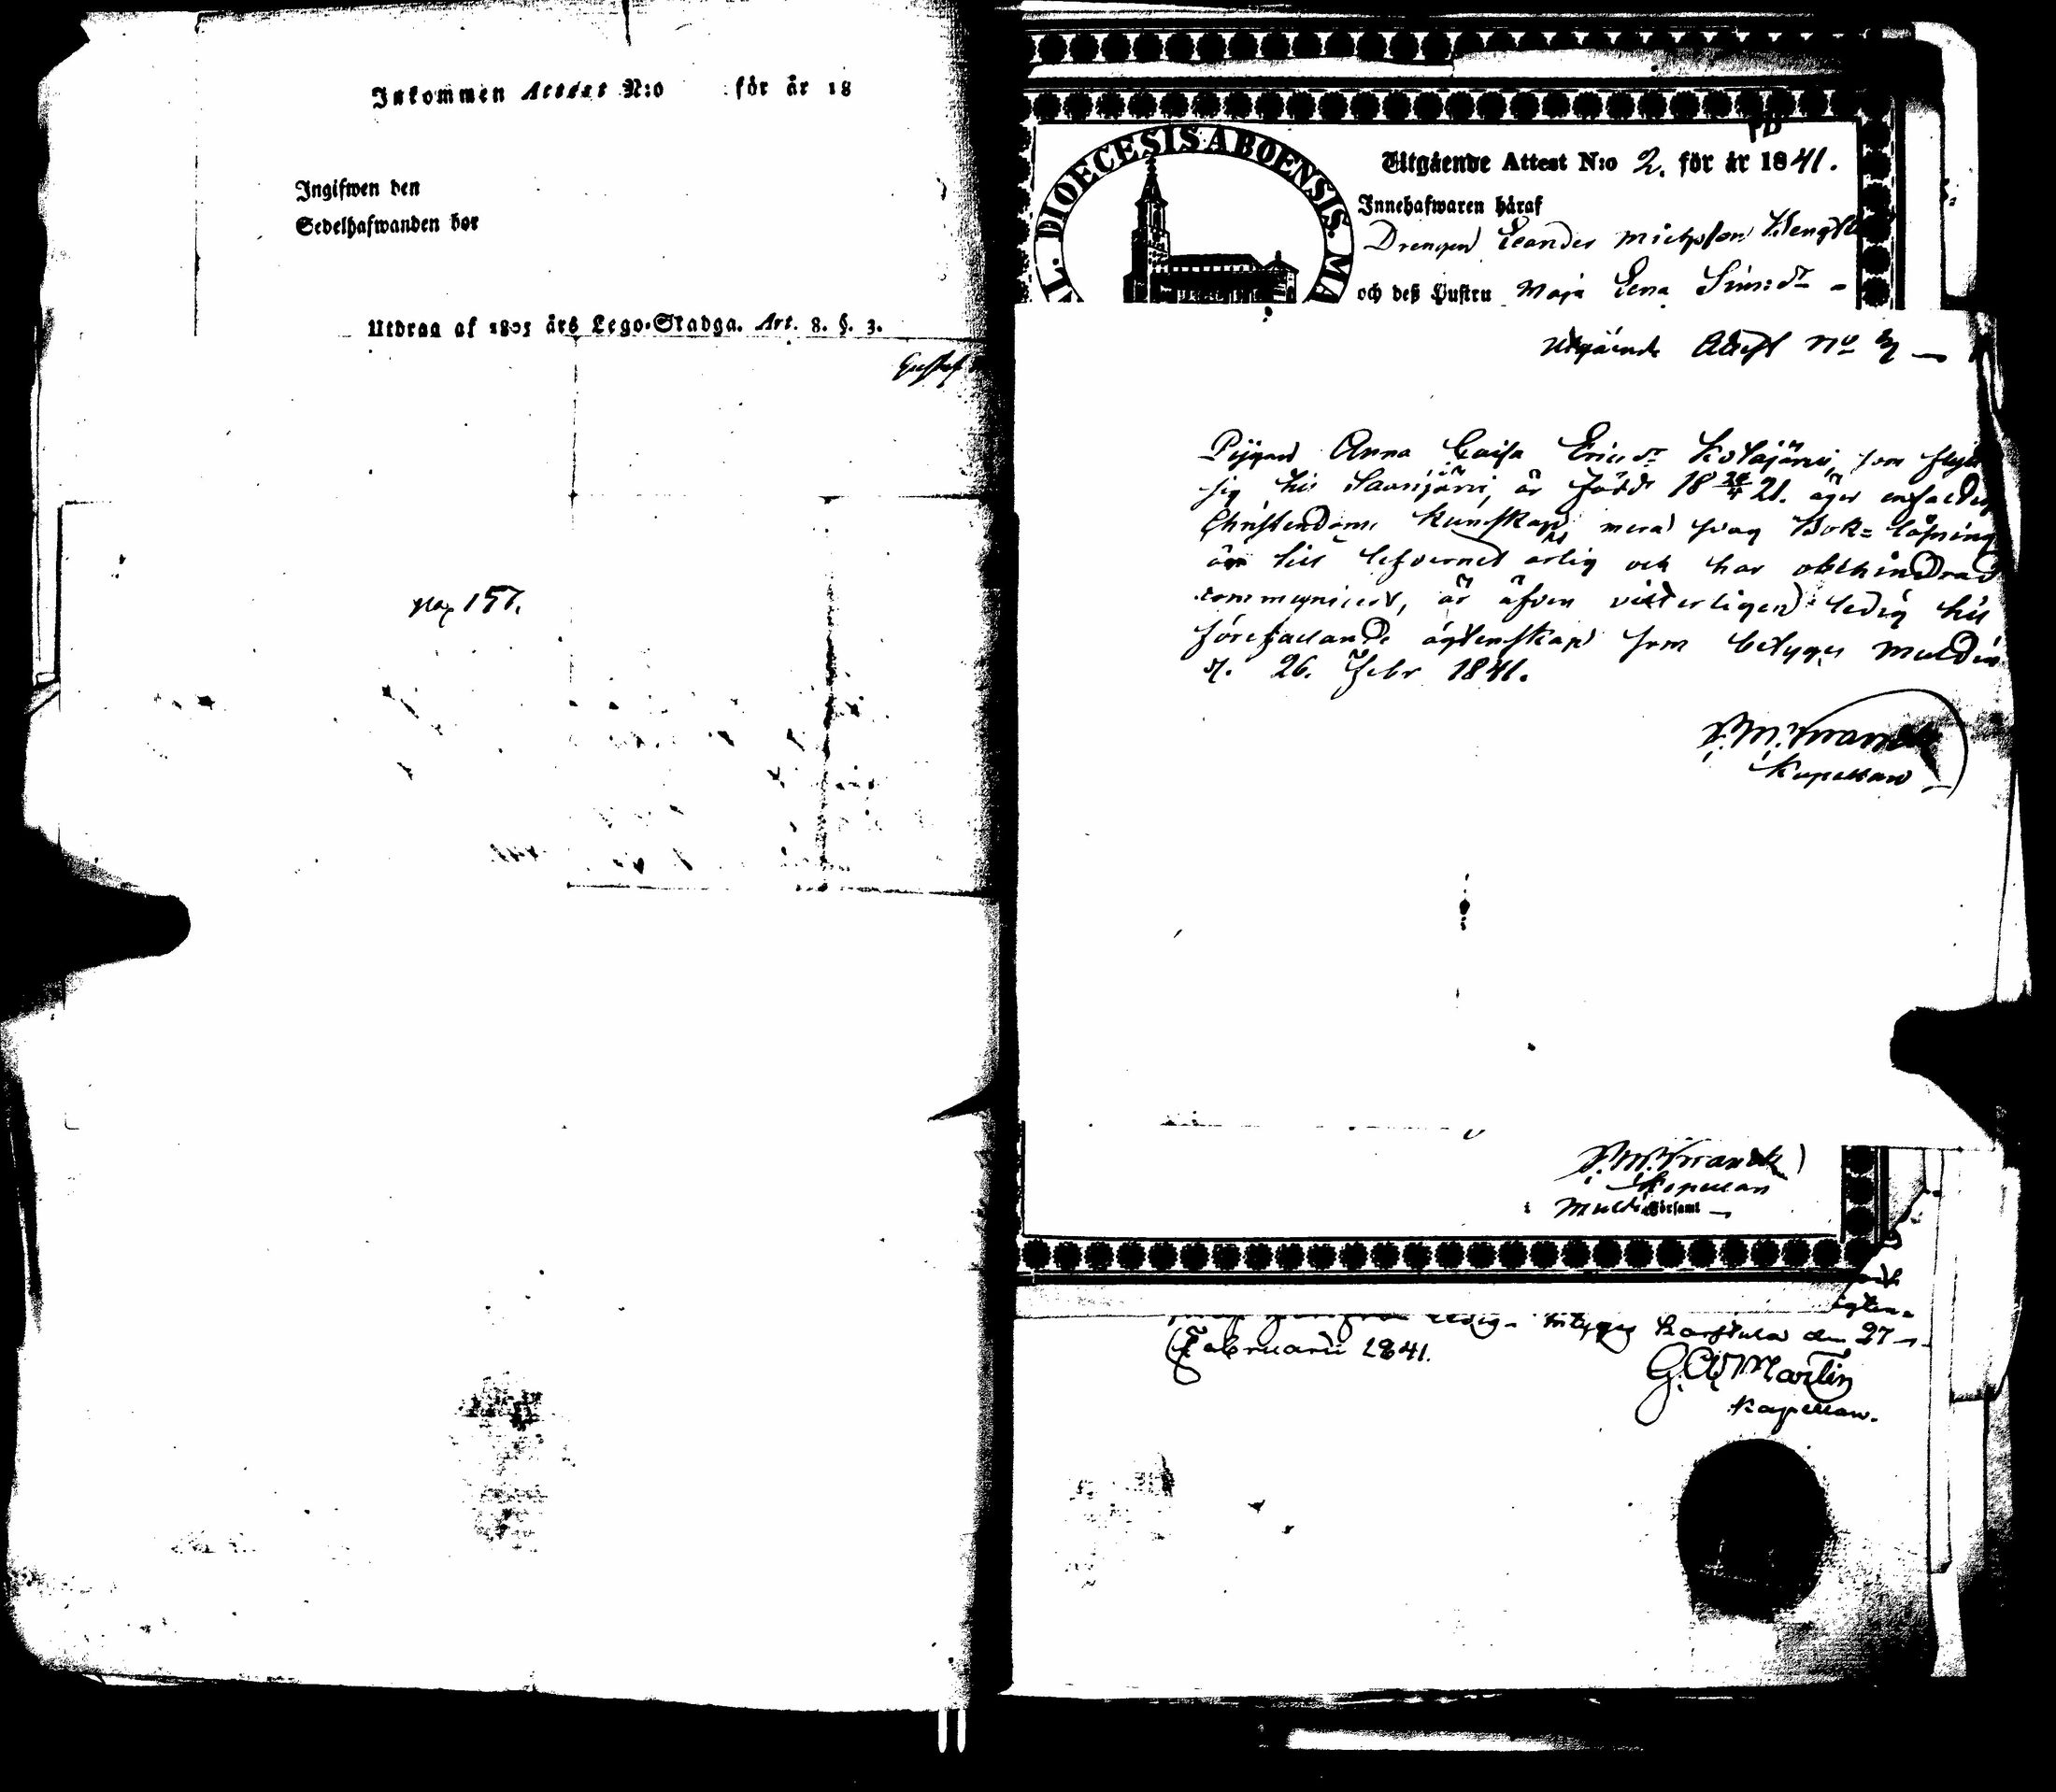 Inkommen Attest N:o för år 18
Ingifwen den
Sedelhafwanden bor
Utdrag af 1805 års Lego-Stadga. Art. 8. §. 3.
Gustaf
pag 157.
DIOECESIS ABOENSIS. MA
Utgående Attest N:o 2. för år 1841.
Innehafwaren häraf
Drengen Leander Michelson
och deß Hustru Maja Lena Sim:dr
Utgående Attest No 3
Pigan Anna Caisa Ericsdr Kolajärvi, som flyttar
sig till Saarijärvi, är född 18 21. äger enfaldig
Christendoms kunskap, mera svag Bok-läsning
är till lefvernet ärlig och har obehindrad
communicerat, är äfven vitterligen ledig till
förefallande ägtenskap som betygas Multia
d. 26. Febr 1841.
Kapellan
Kapellan
i Multia Församl
ägten=
ledig betygas Karstula den 27
Februarii 1841.
G. A. Martin
Kapellan.